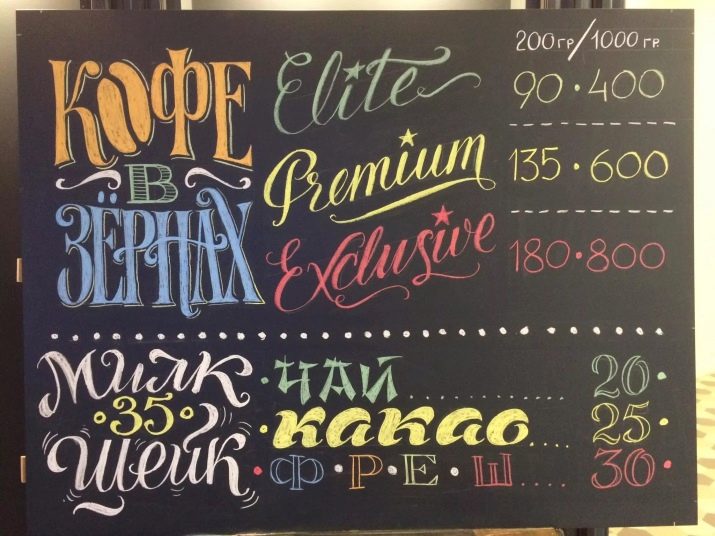 200 гр/1000 гр.
КОФЕ
В
ЗЁРНАХ
Elite 90·400
Premium 135·600
Exclusive 180·800
Милк
35
Шейк
·ЧАЙ.............20·
·какао....25·
·Ф·Р·Е·Ш....30·